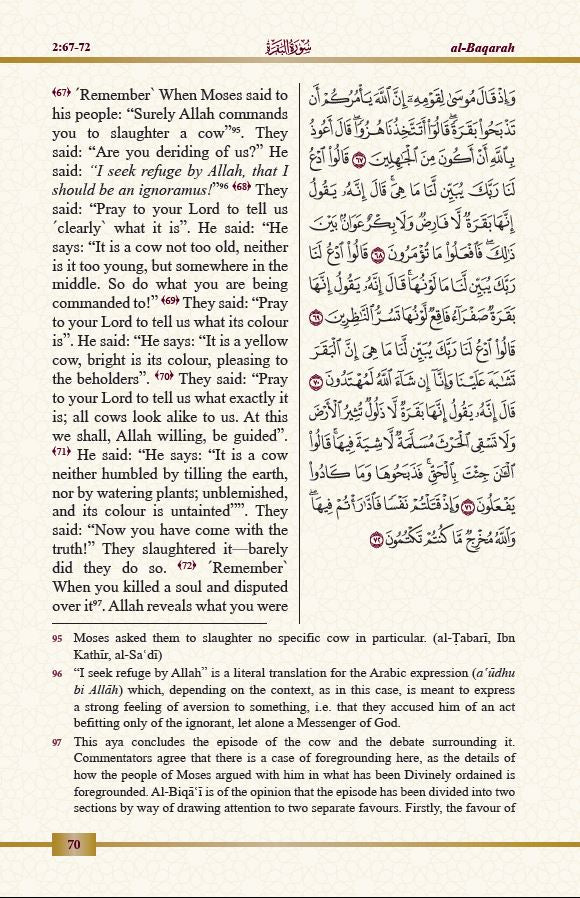 2:67-72
سُورَةُ البَقَرَةِ
al-Baqarah
﴾67﴿ ´Remember` When Moses said to
his people: “Surely Allah commands
you to slaughter a cow”⁹⁵. They
said: “Are you deriding of us?” He
said: “I seek refuge by Allah, that I
should be an ignoramus!”⁹⁶ ﴾68﴿ They
said: “Pray to your Lord to tell us
´clearly` what it is”. He said: “He
says: “It is a cow not too old, neither
is it too young, but somewhere in the
middle. So do what you are being
commanded to!” ﴾69﴿ They said: “Pray
to your Lord to tell us what its colour
is”. He said: “He says: “It is a yellow
cow, bright is its colour, pleasing to
the beholders”. ﴾70﴿ They said: “Pray
to your Lord to tell us what exactly it
is; all cows look alike to us. At this
we shall, Allah willing, be guided”.
﴾71﴿ He said: “He says: “It is a cow
neither humbled by tilling the earth,
nor by watering plants; unblemished,
and its colour is untainted””. They
said: “Now you have come with the
truth!” They slaughtered it—barely
did they do so. ﴾72﴿ ´Remember`
When you killed a soul and disputed
over it⁹⁷. Allah reveals what you were
وَإِذْ قَالَ مُوسَىٰ لِقَوْمِهِۦٓ إِنَّ ٱللَّهَ يَأْمُرُكُمْ أَن
تَذْبَحُوا۟ بَقَرَةً ۖ قَالُوٓا۟ أَتَتَّخِذُنَا هُزُوًا ۖ قَالَ أَعُوذُ
بِٱللَّهِ أَنْ أَكُونَ مِنَ ٱلْجَٰهِلِينَ ٦٧ قَالُوا۟ ٱدْعُ
لَنَا رَبَّكَ يُبَيِّن لَّنَا مَا هِىَ ۚ قَالَ إِنَّهُۥ يَقُولُ
إِنَّهَا بَقَرَةٌ لَّا فَارِضٌ وَلَا بِكْرٌ عَوَانٌۢ بَيْنَ
ذَٰلِكَ ۖ فَٱفْعَلُوا۟ مَا تُؤْمَرُونَ ٦٨ قَالُوا۟ ٱدْعُ لَنَا
رَبَّكَ يُبَيِّن لَّنَا مَا لَوْنُهَا ۚ قَالَ إِنَّهُۥ يَقُولُ إِنَّهَا
بَقَرَةٌ صَفْرَآءُ فَاقِعٌ لَّوْنُهَا تَسُرُّ ٱلنَّٰظِرِينَ ٦٩
قَالُوا۟ ٱدْعُ لَنَا رَبَّكَ يُبَيِّن لَّنَا مَا هِىَ إِنَّ ٱلْبَقَرَ
تَشَٰبَهَ عَلَيْنَا وَإِنَّآ إِن شَآءَ ٱللَّهُ لَمُهْتَدُونَ ٧٠
قَالَ إِنَّهُۥ يَقُولُ إِنَّهَا بَقَرَةٌ لَّا ذَلُولٌ تُثِيرُ ٱلْأَرْضَ
وَلَا تَسْقِى ٱلْحَرْثَ مُسَلَّمَةٌ لَّا شِيَةَ فِيهَا ۚ قَالُوا۟
ٱلْـَٰٔنَ جِئْتَ بِٱلْحَقِّ ۚ فَذَبَحُوهَا وَمَا كَادُوا۟
يَفْعَلُونَ ٧١ وَإِذْ قَتَلْتُمْ نَفْسًا فَٱدَّٰرَْٰٔتُمْ فِيهَا ۖ
وَٱللَّهُ مُخْرِجٌ مَّا كُنتُمْ تَكْتُمُونَ ٧٢
95 Moses asked them to slaughter no specific cow in particular. (al-Ṭabarī, Ibn
Kathīr, al-Saʿdī)
96 “I seek refuge by Allah” is a literal translation for the Arabic expression (aʿūdhu
bi Allāh) which, depending on the context, as in this case, is meant to express
a strong feeling of aversion to something, i.e. that they accused him of an act
befitting only of the ignorant, let alone a Messenger of God.
97 This aya concludes the episode of the cow and the debate surrounding it.
Commentators agree that there is a case of foregrounding here, as the details of
how the people of Moses argued with him in what has been Divinely ordained is
foregrounded. Al-Biqāʿī is of the opinion that the episode has been divided into two
sections by way of drawing attention to two separate favours. Firstly, the favour of
70